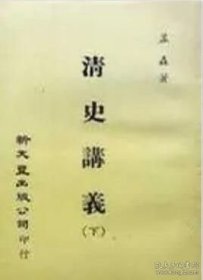 孟森著
清史講義
(下)
新文豐出版公司印行